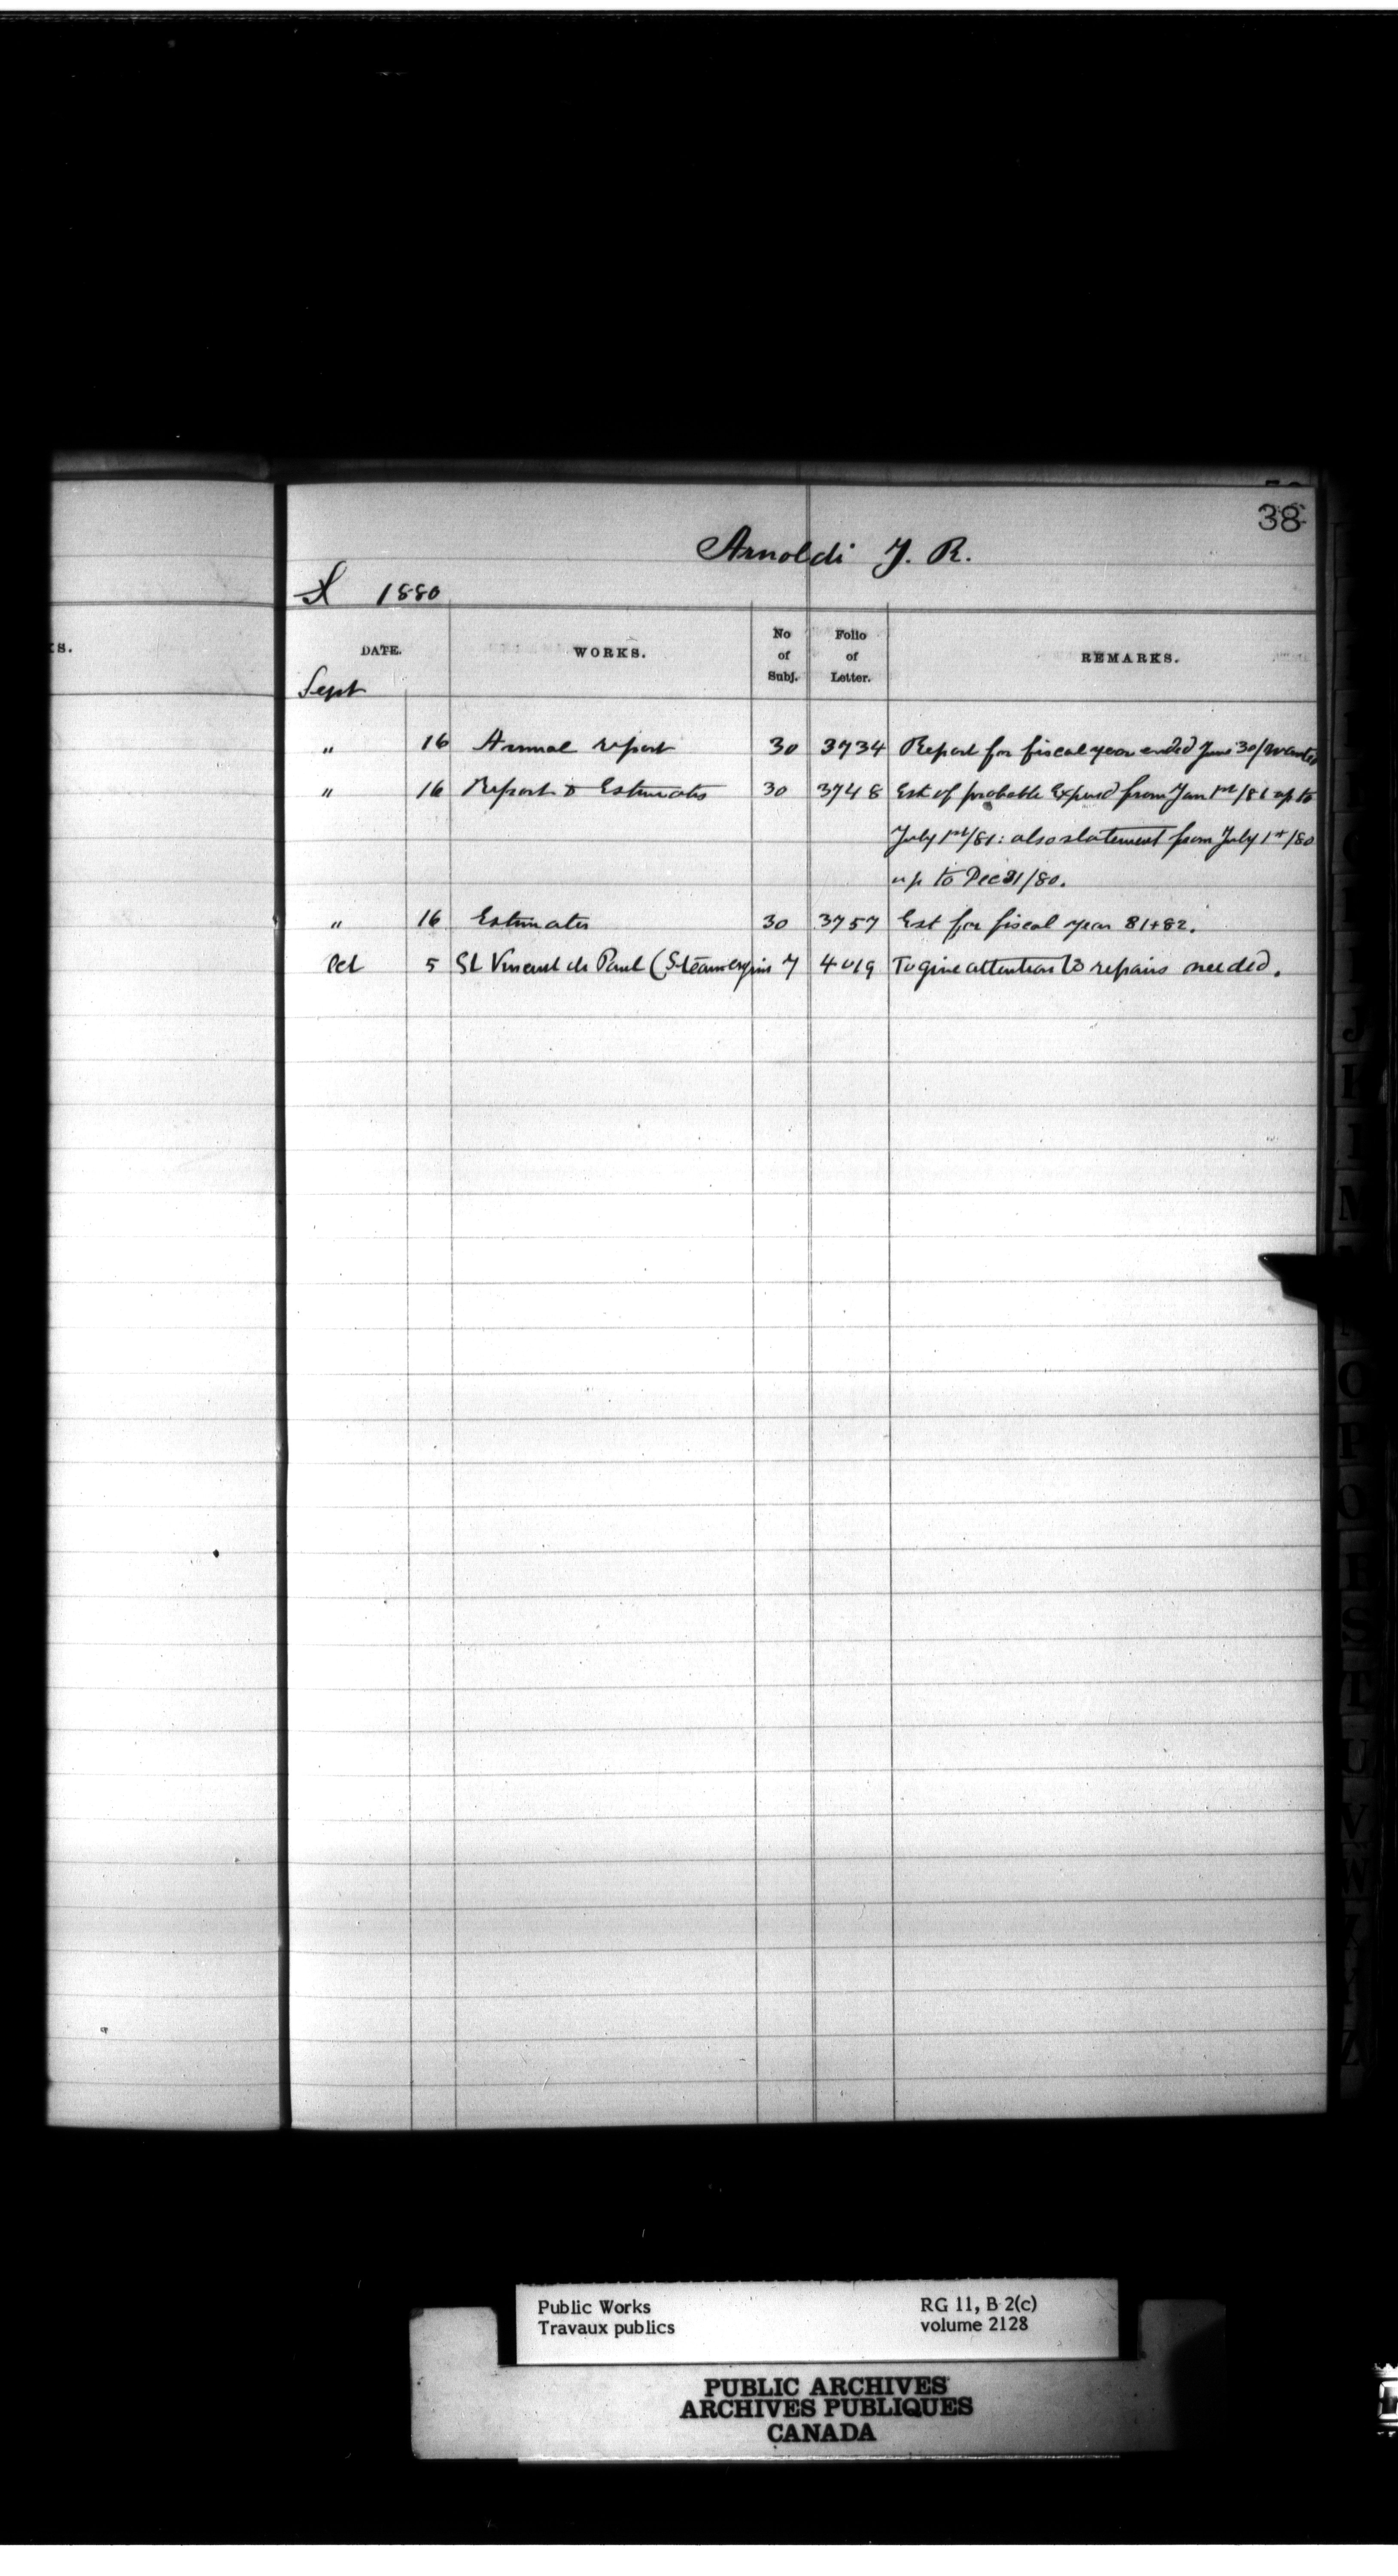 38
Arnoldi J. R.
1880
KS.
DATE. WORKS. No of Subj. Folio of Letter. REMARKS.
Sept
" 16 Annual report 30 3734 Report for fiscal year ended June 30/ wanted
" 16 Report & Estimates 30 3748 Est of probable Expend from Jan 1st/81 up to
July 1st/81: also statement from July 1st/80
up to Dec 31/80.
" 16 Estimates 30 3757 Est for fiscal year 81+82.
Oct 5 St Vincent de Paul (Steam engine 7 4019 To give attention to repairs needed.
Public Works RG 11, B 2(c)
Travaux publics volume 2128
PUBLIC ARCHIVES
ARCHIVES PUBLIQUES
CANADA